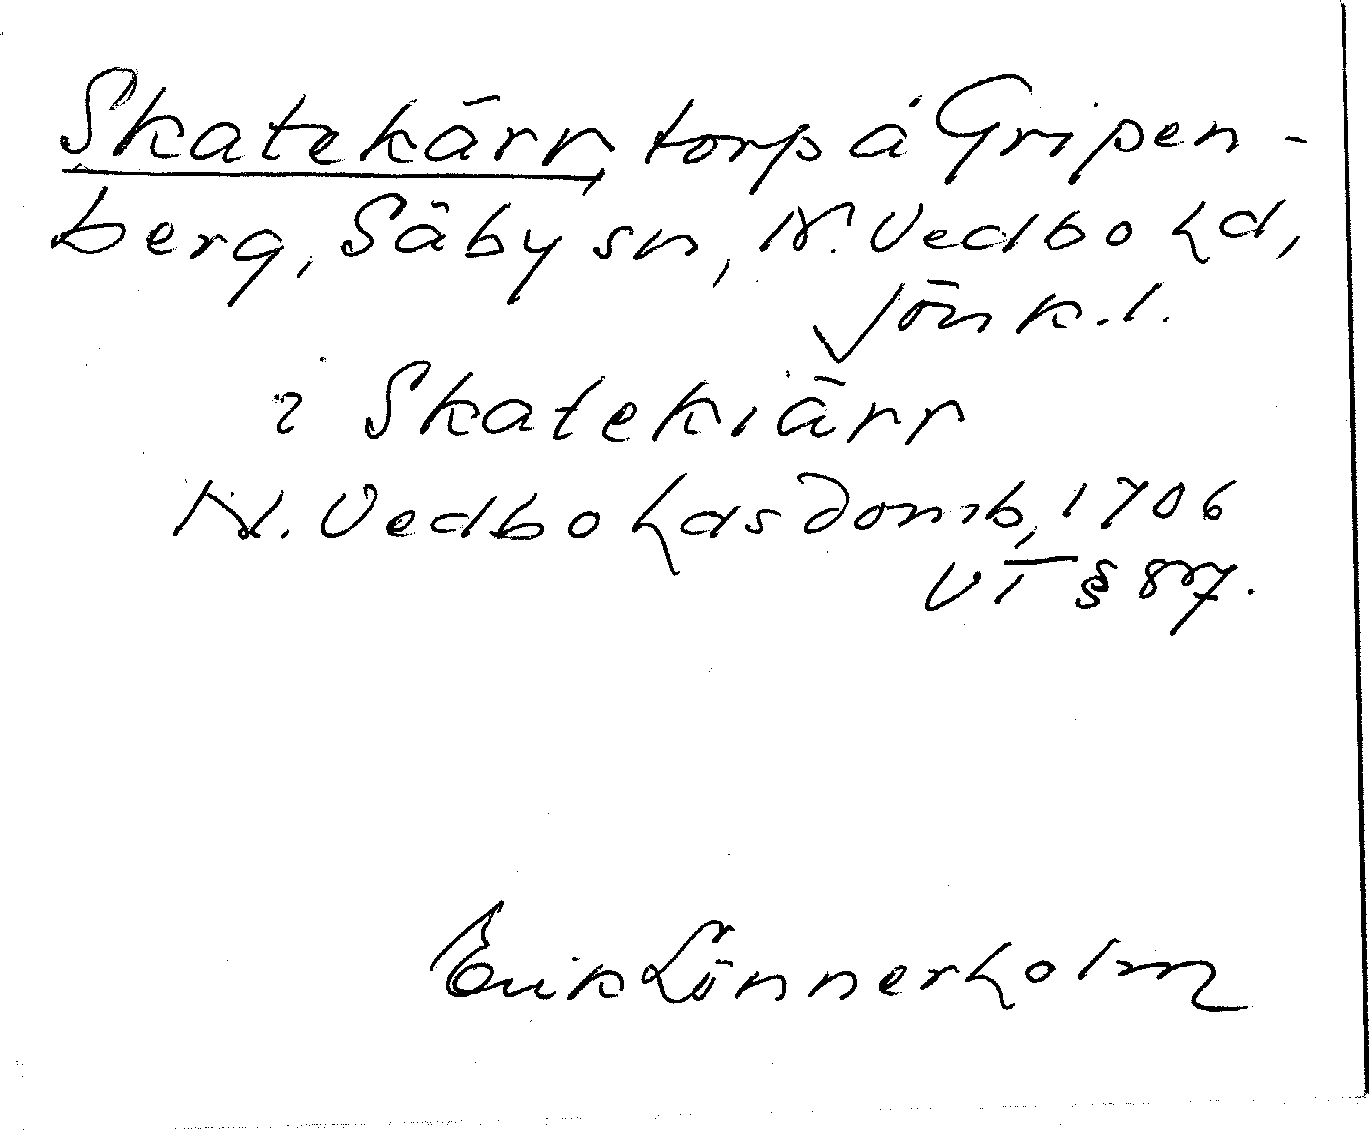 Skatekärr, torp å Gripen-
berg, Säby sn, N. Vedbo hd,
Jönk. l.
i Skatekiärr
N. Vedbo hds domb, 1706
VT § 87.
Erik Lönnerholm